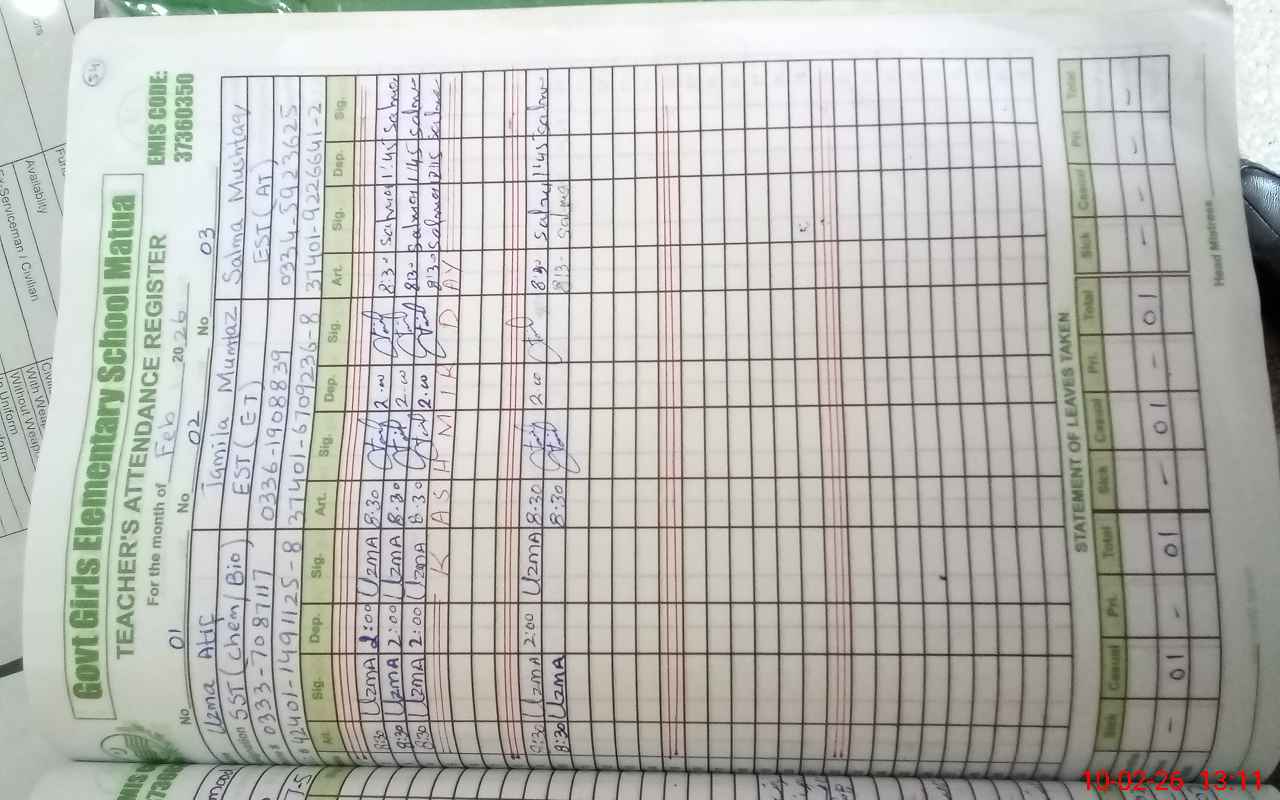 54
Govt Girls Elementary School Matua
EMIS CODE:
37360350
TEACHER'S ATTENDANCE REGISTER
For the month of Feb 2026
No 01 No 02 No 03
Uzma Atif Jamila Mumtaz Salma Mushtaq
SST (Chem/Bio) EST (ET) EST (AT)
0333-7087117 0336-1908839 0334-5923625
42401-1491125-8 37401-6709236-8 37401-9226641-2
Art. Sig. Dep. Sig. Art. Sig. Dep. Sig. Art. Sig. Dep. Sig.
8:30 UzMA 2:00 UzMA 8.30 2.00 8:30 Salma 1:45 Salma
8:30 UzMA 2:00 UzMA 8.30 2.00 8:30 Salma 1:45 Salma
8:30 UzMA 2:00 UzMA 8.30 2.00 8:30 Salma Salma
K A S H M I R D AY
8:30 UzMA 2:00 UzMA 8.30 2.00 8:30 Salma 1:45 Salma
8:30 UzMA 8:30 8:30 Salma
STATEMENT OF LEAVES TAKEN
Sick Casual Pri. Total Sick Casual Pri. Total Sick Casual Pri. Total
- 01 - 01 - 01 - 01 - - - -
Head Mistress
10-02-26 13:11
Availability
Ex-Serviceman / Civilian